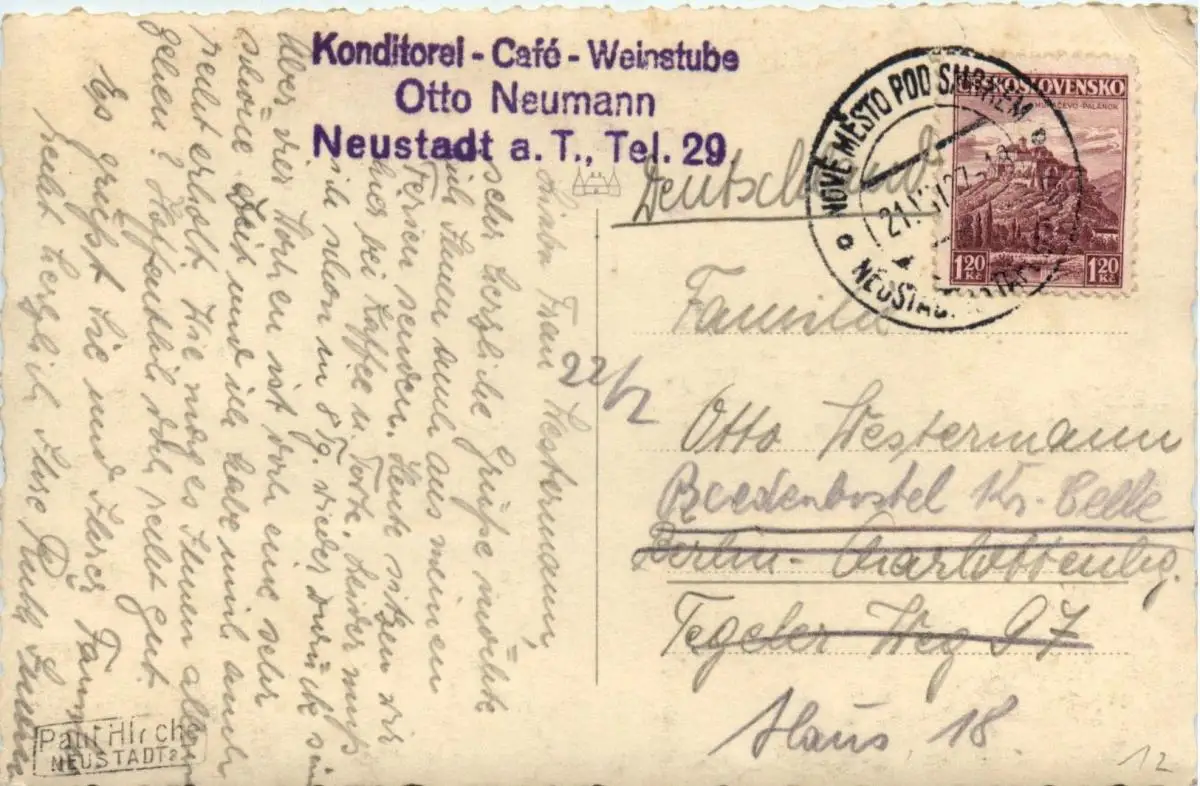 Konditorei - Café - Weinstube
Otto Neumann
Neustadt a. T., Tel. 29
Frau Westermann,
sehr herzliche Grüße möchte
ich Ihnen auch aus meinen
Ferien senden. Heute sitzen wir
hier bei Kaffee u. Torte. Leider muß
ich schon in 8 Tg. wieder zurück sein
Aber hier oben ist doch eine sehr
schöne Zeit und ich habe mich auch
recht erholt. Wie mag es Ihnen allen
gehen? Hoffentlich doch recht gut.
Es grüßt Sie und Ihre
recht herzlich Ihre
Paul Hirche
NEUSTADT a
Deutschland
NOVÉ MĚSTO POD SMRKEM
NEUSTADT
ČESKOSLOVENSKO
MUKAČEVO-PALANOK
1.20 Kč
1.20 Kč
22/2
Familie
Otto Westermann
Beedenbostel Kr. Celle
Berlin-Charlottenbg.
Tegeler Weg 97
Haus 18.
12